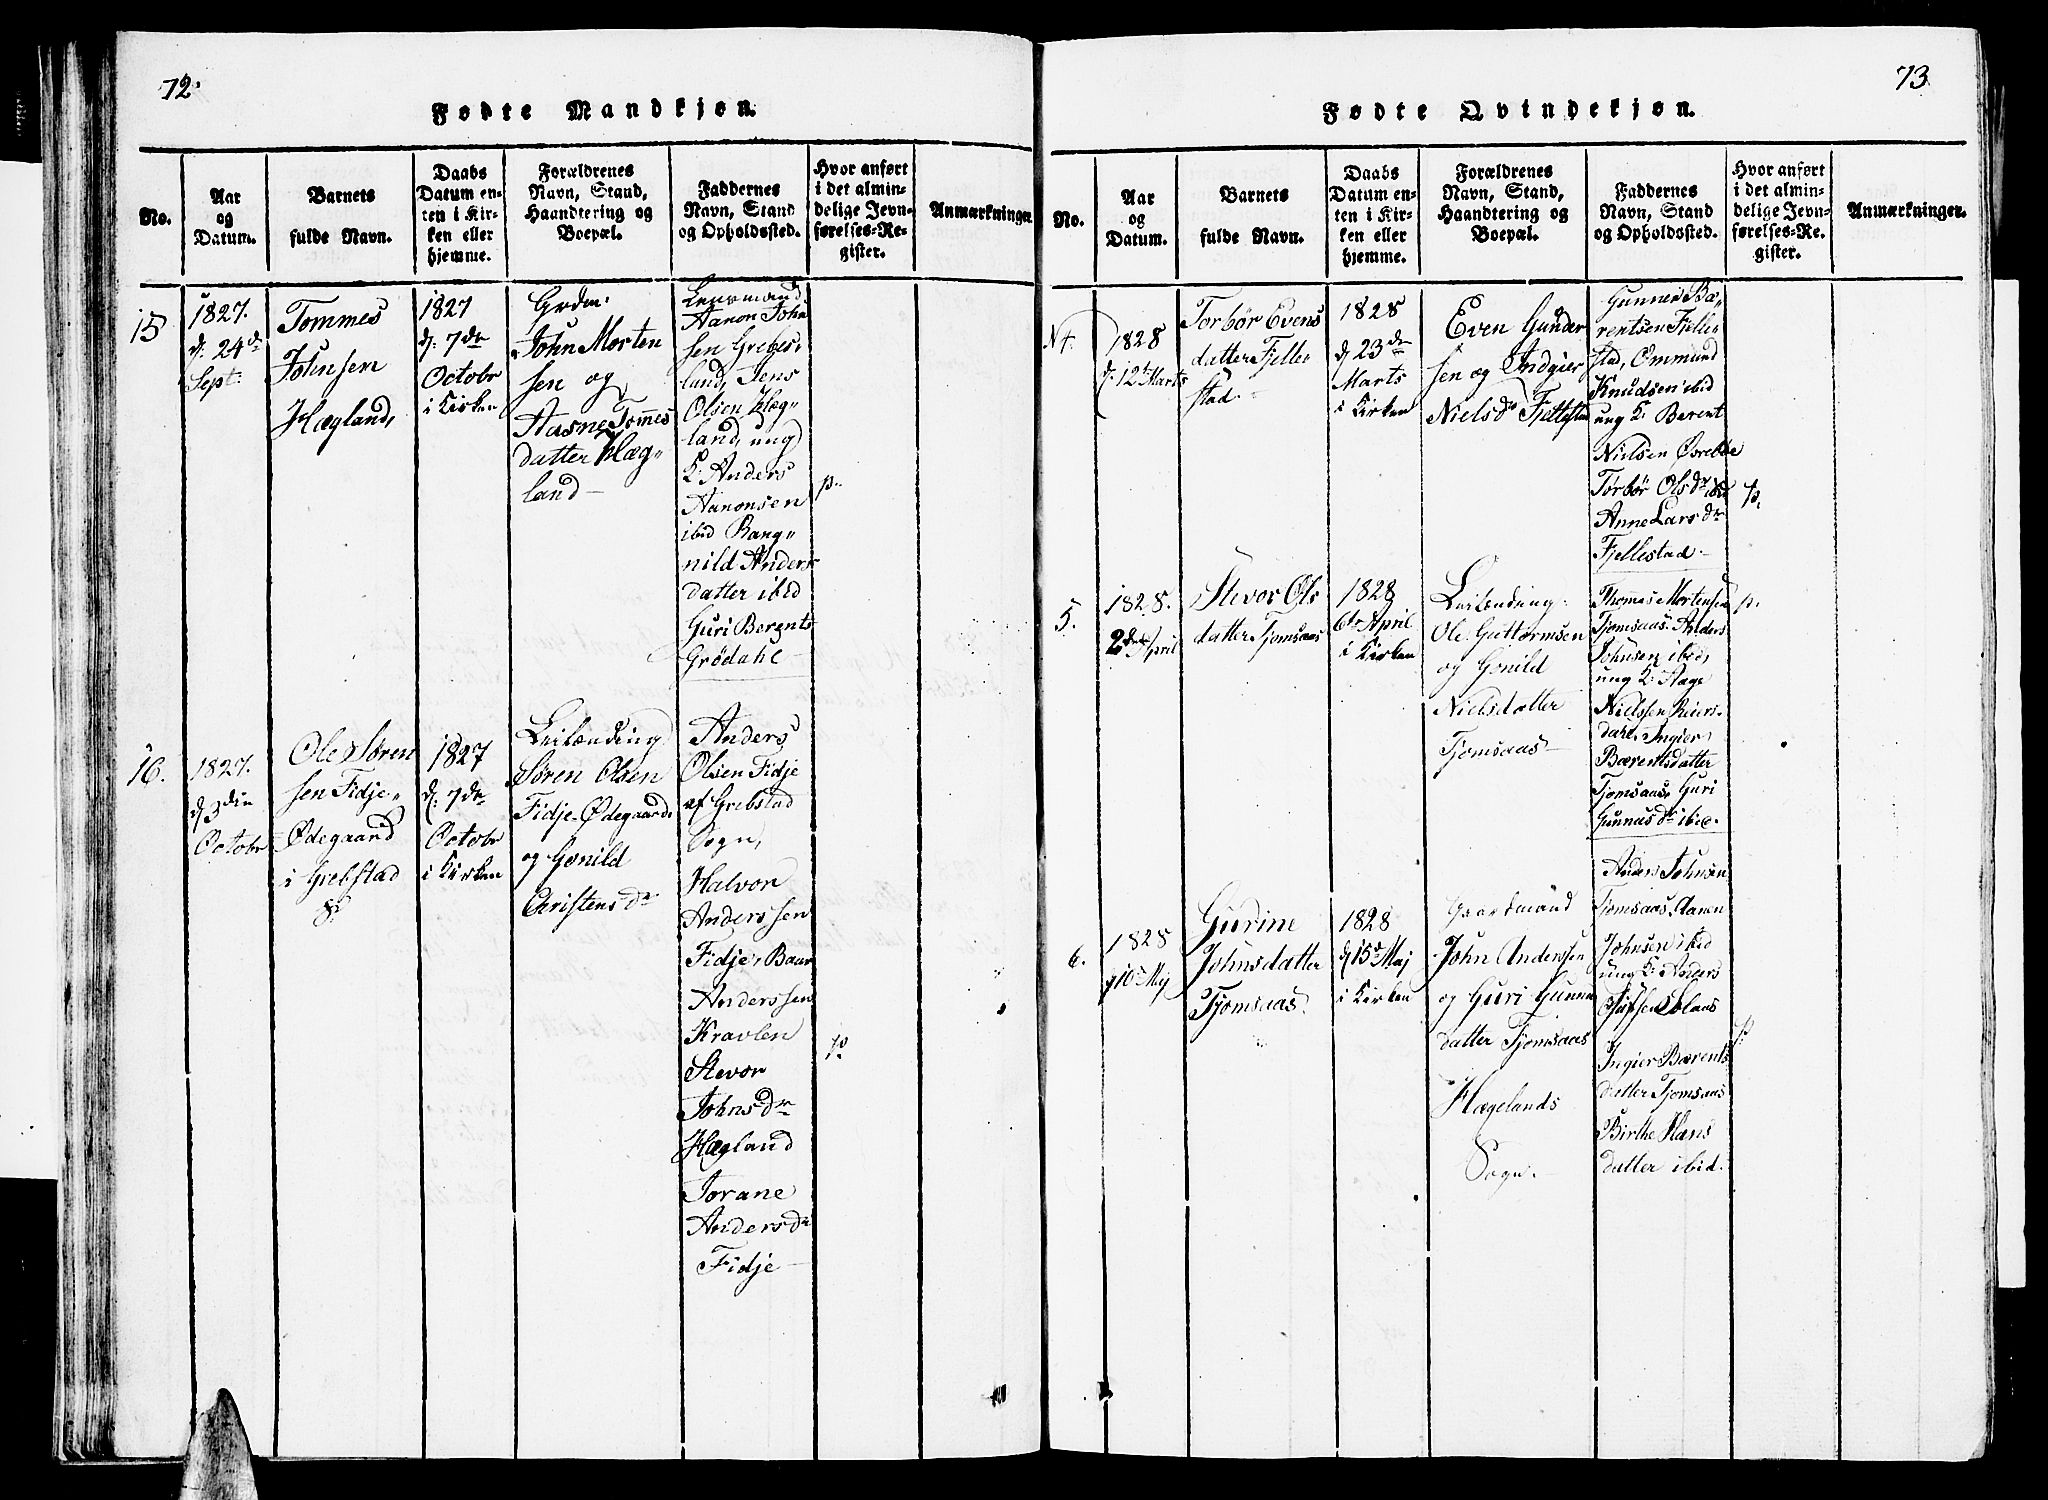 72.
Fødte Mandkjøn.
No.
Aar
og
Datum.
Barnets
fulde Navn.
Daabs
Datum en-
ten i Kir-
ken eller
hjemme.
Forældrenes
Navn, Stand,
Haandtering og
Boepæl.
Faddernes
Navn, Stand
og Opholdssted.
Hvor anført
i det almin-
delige Jevn-
førelses-Re-
gister.
Anmærkninger.
15
1827.
d: 24de
Sept:
Tommes
Johnsen
Hægland,
1827
d: 7de
Octobr
i Kirken
Grdm:
John Morten
sen og
Aasne Tommes
datter Hæg„
land
Lensmand
Aanon John
sen Grebes„
land, Jens
Olsen Hæg„
land, ung
K: Anders
Aanonsen
ibid Rang„
nild Anders
datter ibid
Guri Berents
Grødahl
p.
16.
1827.
d 3die
Octobr
Ole Søren
sen Fidje„
Ødegaard
i Grebstad
S:
1827
d: 7de
Octobr
i Kirken
Leilænding
Søren Olsen
Fidje-Ødegaard
og Gonild
Christensdr
Anders
Olsen Fidje
af Grebstad
Sogn,
Halvor
Anderssen
Fidje, Baar
Anderssen
Kravlen
Stevor
Johnsdr
Hægland
Torane
Andersdr
Fidje
p.
73
Fødte Qvindekjøn.
No.
Aar
og
Datum.
Barnets
fulde Navn.
Daabs
Datum en-
ten i Kir-
ken eller
hjemme.
Forældrenes
Navn, Stand,
Haandtering og
Boepæl.
Faddernes
Navn, Stand
og Opholdssted.
Hvor anført
i det almin-
delige Jevn-
førelses-Re-
gister.
Anmærkninger.
4.
1828
d: 12t Marts
Torbør Evens
datter Fjelle
stad.
1828
d 23de
Marts
i Kirken
Even Gunder
sen og Indgier
Nielsdr Fjellestad
Gunner Bæ„
rentsen Fjelle
stad, Ommund
Knudsen ibid
ung K: Berent
Nielsen Øvrebøe
Torbør Olsdr ibid
Anne Larsdr
Fjellestad
p.
5.
1828.
2den April
Stevor Ols
datter Tjomsaas
1828
6te April
i Kirken
Leilænding
Ole Guttormsen
og Gonild
Nielsdatter
Tjomsaas
Thommes Mortensen
Tjomsaas, Anders
Johnsen ibid,
ung K: Aage
Nielssen Reiers„
dahl, Ingier
Bærentsdatter
Tjomsaas, Guri
Gunnusdr ibid.
p.
6.
1828
d 10 Maj
Gurine
Johnsdatter
Tjomsaas
1828
d 15de Maj
i Kirken
Gaardmand
John Anderssen
og Guri Gunnu
datter Tjomsaas
Hægelands
Sogn.
Anders Johnsen
Tjomsaas, Aanen
Johnsen ibid
ung K: Anders
Ingier Bærents
datter Tjomsaas
Birthe Hans
datter ibid.
p.